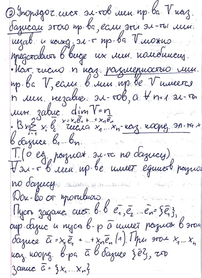 ② Упорядоч. сист. эл-тов лин. пр-ва V наз.
базисом этого пр-ва, если эти эл-ты лин.
незав и кажд. эл-т пр-ва V можно
представить в виде их лин. комбинац.
• Кол. число n наз. размерностью лин.
пр-ва V, если в лин пр-ве V имеется
n лин. независ. эл-тов, а ∀ n+1 эл-ты
лин. завис dim V = n
числа x₁...xₙ - наз. коорд. эл-та x
в базисе
T (о ед. разлож эл-та по базису)
∀ эл-т в лин пр-ве имеет единств разлож
по базису.
Док-во от противного
Пусть задана сист. в-в ē₁, ē₂...ēₙ = {ē},
обр. базис и пусть в-р ā имеет разлож в этом
базисе ā = x₁ē₁+...+xₙēₙ (*). При этом x₁...xₙ
наз коорд. в-ра ā в базисе {ē}, что
запис ā = {x₁...xₙ}